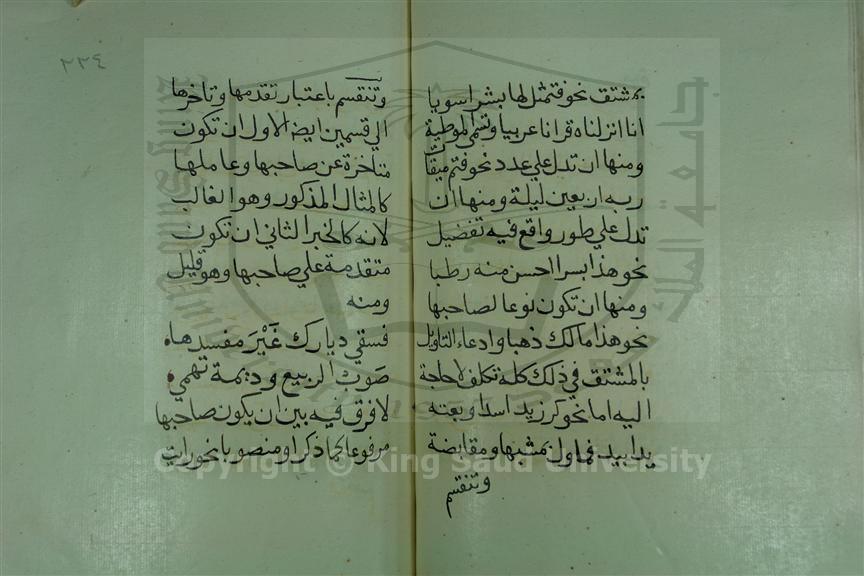 بمشتق نحو فتمثل لها بشرا سويا
انا انزلناه قرانا عربيا وتسمى الموطية
ومنها ان تدل علي عدد نحو فتم ميقات
ربه اربعين ليلة ومنها ان
تدل علي طور واقع فيه تفضيل
نحو هذا بسرا احسن منه رطبا
ومنها ان تكون نوعا لصاحبها
نحو هذا مالك ذهبا وادعاء التاويل
بالمشتق في ذلك كله تكلف لا حاجة
اليه اما نحو كر زيد اسدا وبعته
يدا بيد فماول بمشبها ومقابضة
وتنقسم
٢٢٤
وتنقسم باعتبار تقدمها وتاخرها
الي قسمين ايضا الاول ان تكون
متاخرة عن صاحبها وعاملها
كالمثال المذكور وهو الغالب
لانه كالخبر الثاني ان تكون
متقدمة علي صاحبها وهو قليل
ومنه
فسقي ديارك غَيْرَ مفسدها
صَوبُ الربيع وديمة تهمي
لا فرق فيه بين ان يكون صاحبها
مرفوعا كما ذكر او منصوبا نحو رايت
جامعة الملك سعود
Copyright © King Saud University